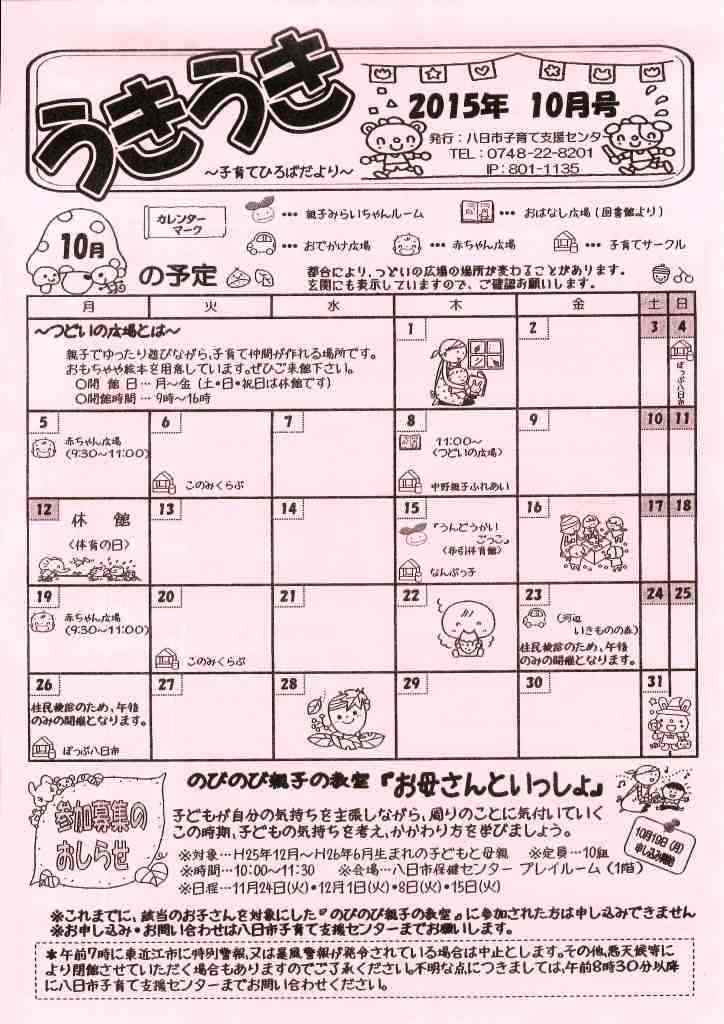 うきうき
～子育てひろばだより～
2015年 10月号
発行：八日市子育て支援センター
TEL：0748-22-8201
IP：801-1135
カレンダーマーク
… 親子みらいちゃんルーム
… おはなし広場（図書館より）
… おでかけ広場
… 赤ちゃん広場
… 子育てサークル
10月
の予定
都合により、つどいの広場の場所が変わることがあります。
玄関にも表示していますので、ご確認お願いします。
月 火 水 木 金 土 日
～つどいの広場とは～
親子でゆったり遊びながら、子育て仲間が作れる場所です。
おもちゃや絵本を用意しています。ぜひご来館下さい。
○開 館 日 … 月～金 （土・日・祝日は休館です）
○開館時間 … 9時～16時
1
2
3
4
ぽっぷ八日市
5
赤ちゃん広場
（9:30～11:00）
6
このみくらぶ
7
8
11:00～
〈つどいの広場〉
中野親子ふれあい
9
10
11
12
休 館
〈体育の日〉
13
14
15
『うんどうかい
ごっこ』
〈布引体育館〉
なんぶっ子
16
17
18
19
赤ちゃん広場
（9:30～11:00）
20
このみくらぶ
21
22
23
（河辺
いきものの森）
住民検診のため、午後
のみの開催となります。
24
25
26
住民検診のため、午後
のみの開催となります。
ぽっぷ八日市
27
28
29
30
31
参加募集の
おしらせ
のびのび親子の教室『お母さんといっしょ』
子どもが自分の気持ちを主張しながら、周りのことに気付いていく
この時期、子どもの気持ちを考え、かかわり方を学びましょう。
10月19日（月）
申し込み開始
※対象…H25年12月～H26年6月生まれの子どもと母親 ※定員…10組
※時間…10:00～11:30 ※会場…八日市保健センター プレイルーム（1階）
※日程…11月24日(火)・12月1日(火)・8日(火)・15日(火)
※これまでに、該当のお子さんを対象にした『のびのび親子の教室』に参加された方は申し込みできません
※お申し込み・お問い合わせは八日市子育て支援センターまでお願いします。
＊午前7時に東近江市に特別警報、又は暴風警報が発令されている場合は中止とします。その他、悪天候等に
より閉館させていただく場合もありますのでご了承ください。不明な点につきましては、午前8時30分以降
に八日市子育て支援センターまでお問い合わせください。